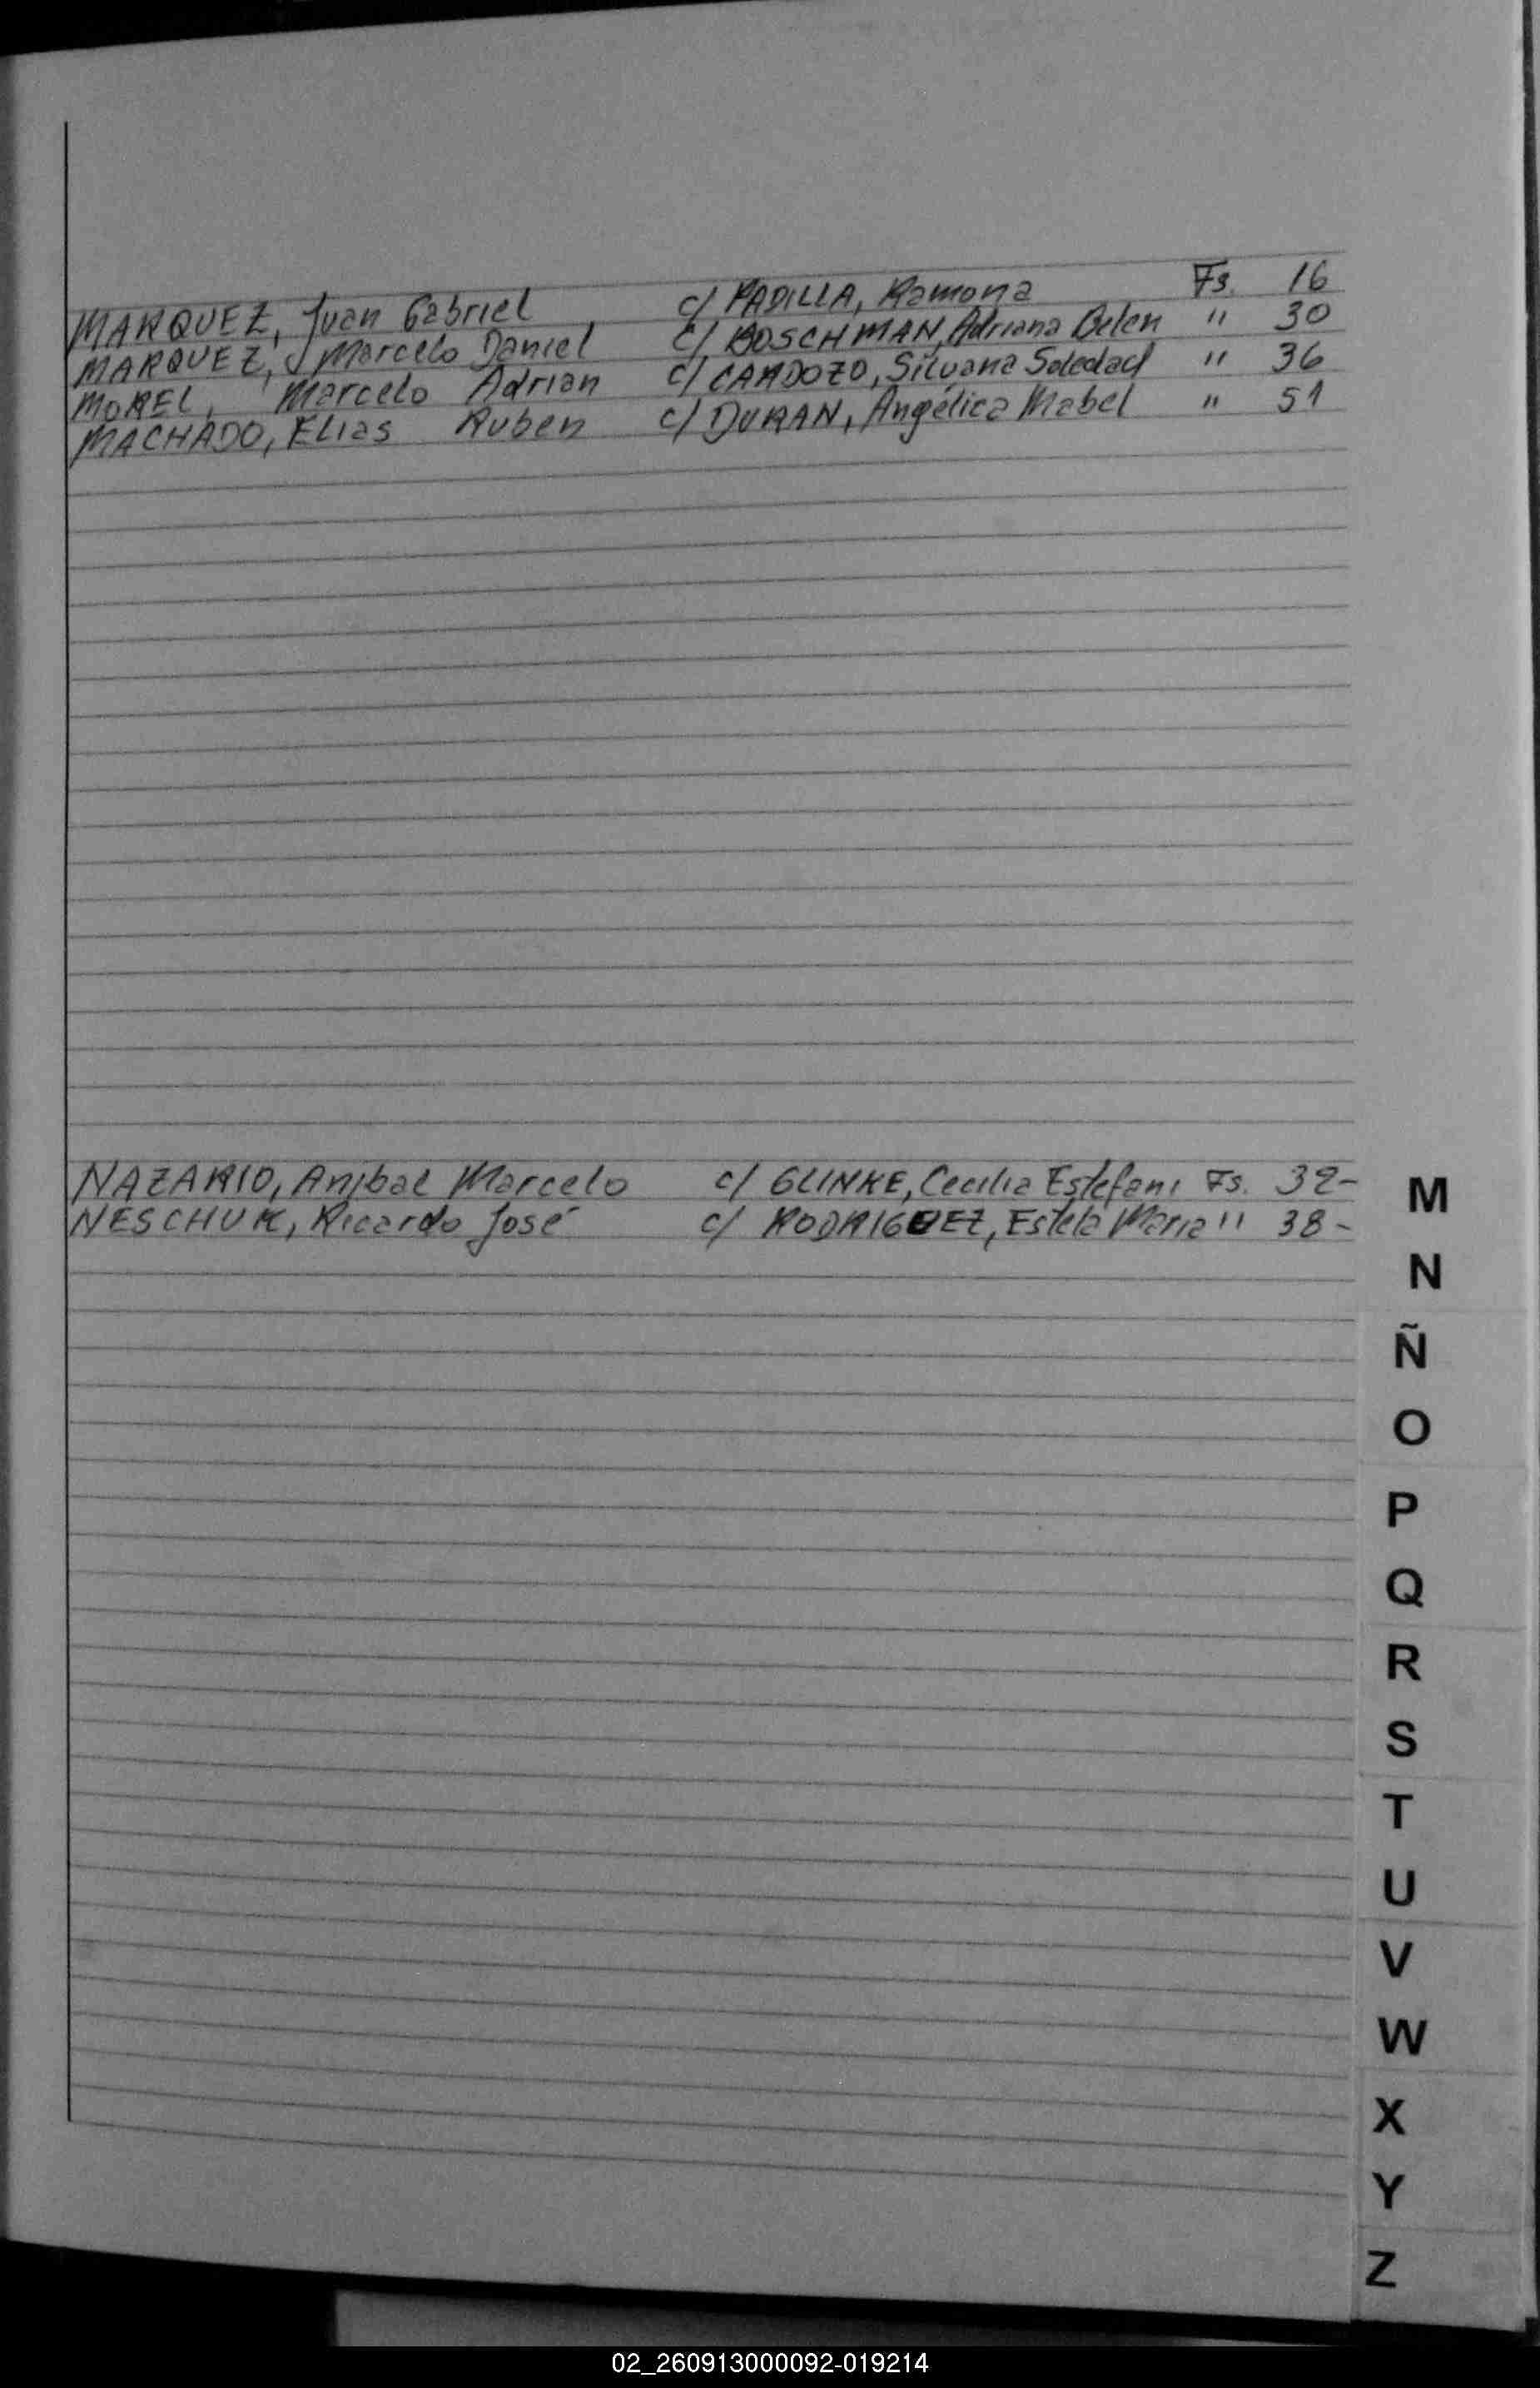 MARQUEZ, Juan Gabriel c/ PADILLA, Ramona Fs. 16
MARQUEZ, Marcelo Daniel c/ BOSCHMAN, Adriana Belen " 30
MOREL, Marcelo Adrian c/ CARDOZO, Silvana Soledad " 36
MACHADO, Elias Ruben c/ DURAN, Angélica Mabel " 51
NAZARIO, Anibal Marcelo c/ GLINKE, Cecilia Estefani Fs. 32-
NESCHUK, Ricardo José c/ RODRIGUEZ, Estela Maria " 38-
M
N
Ñ
O
P
Q
R
S
T
U
V
W
X
Y
Z
02_260913000092-019214